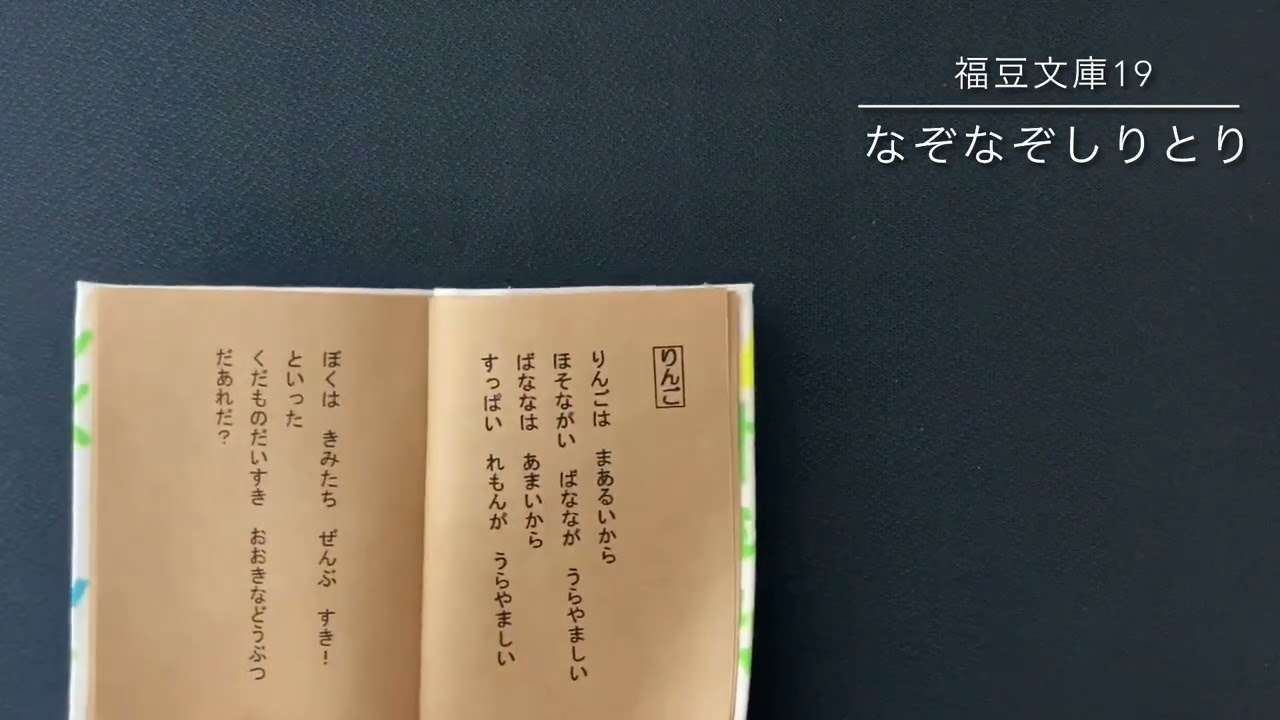 福豆文庫19
なぞなぞしりとり
りんご
りんごは まあるいから
ほそながい ばななが うらやましい
ばななは あまいから
すっぱい れもんが うらやましい
ぼくは きみたち ぜんぶ すき!
といった
くだものだいすき おおきなどうぶつ
だあれだ?